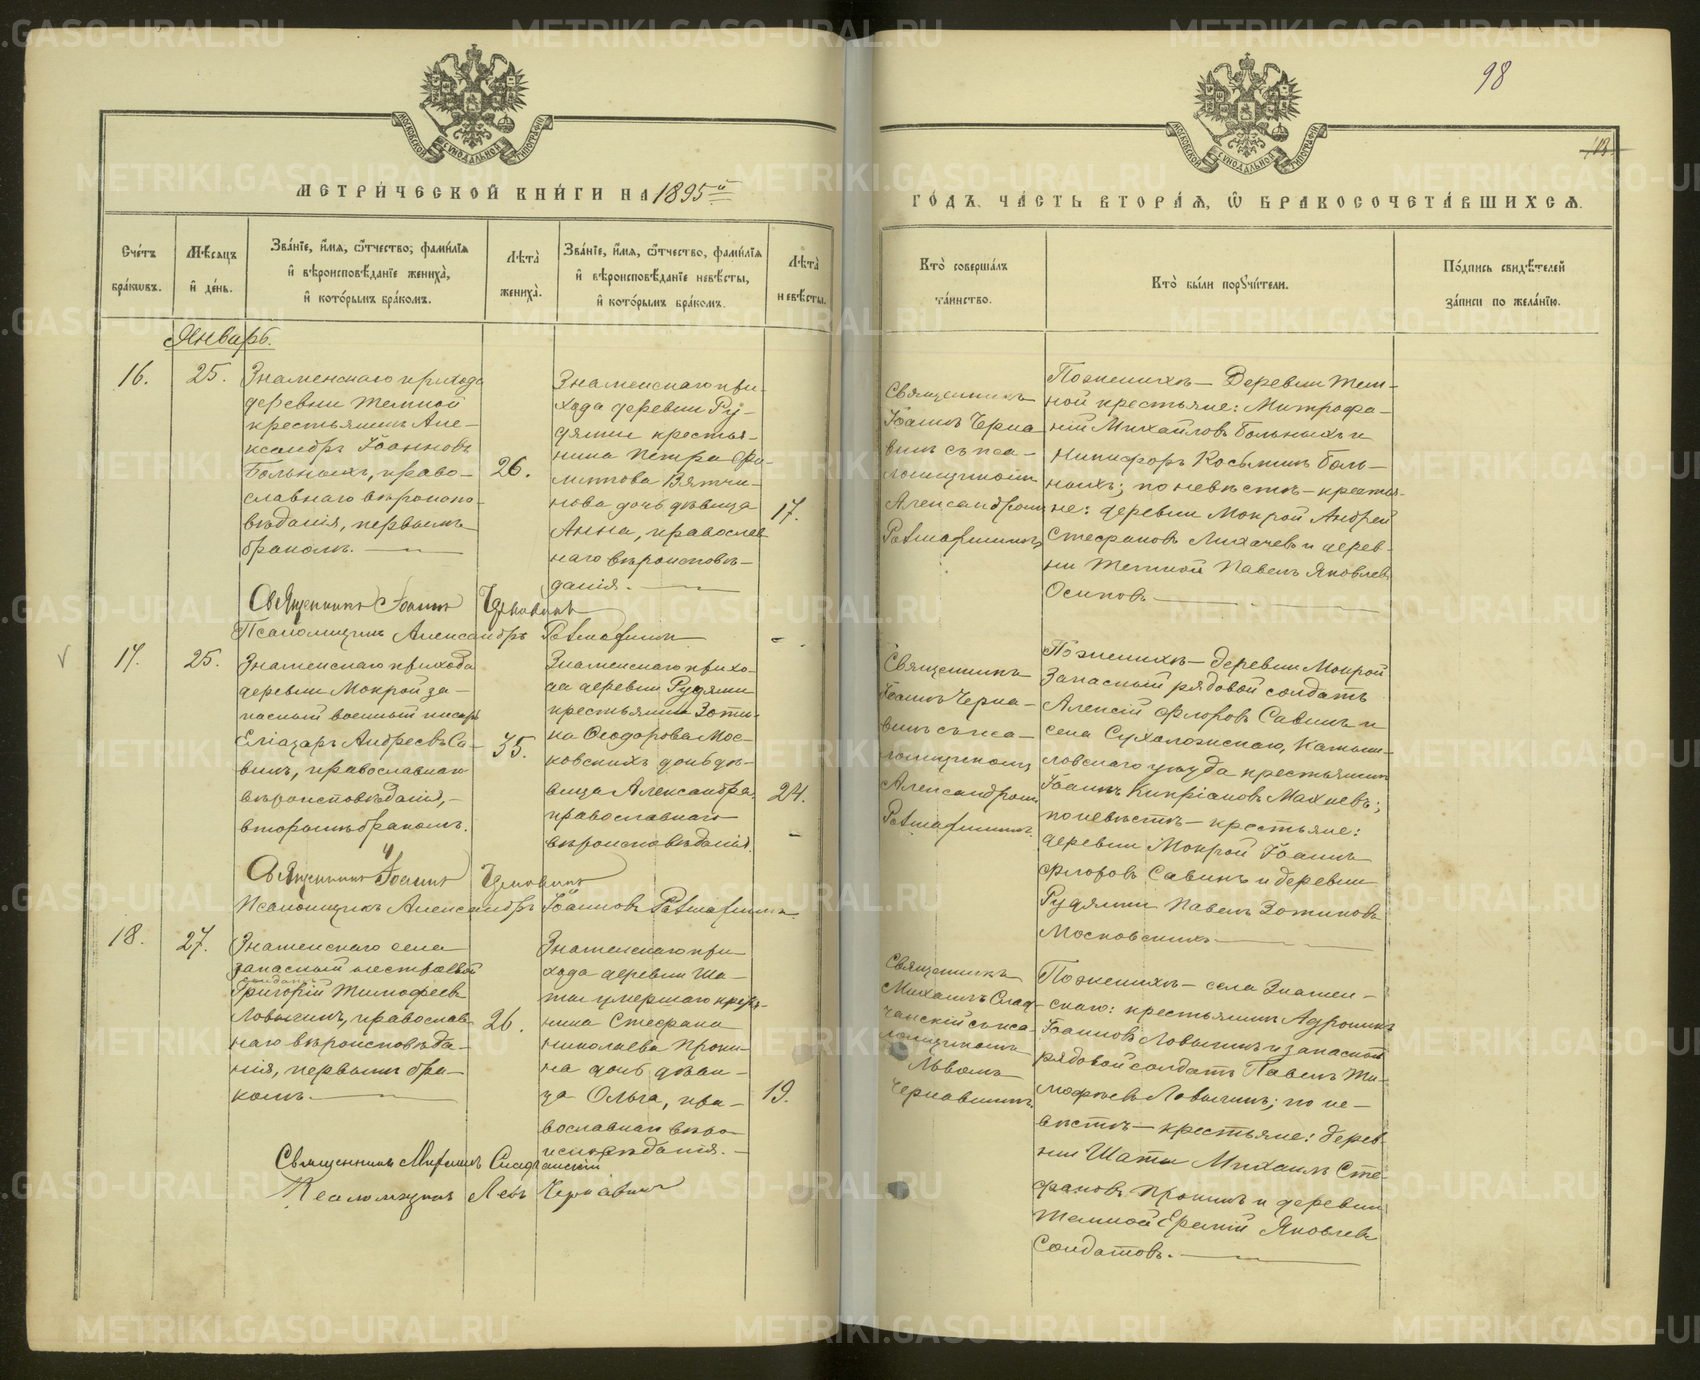 98
МОСКОВСКОЙ СѴНОДАЛЬНОЙ ТИПОГРАФІИ
МОСКОВСКОЙ СѴНОДАЛЬНОЙ ТИПОГРАФІИ
МЕТРИ́ЧЕСКОЙ КНИ́ГИ НА 1895й
ГО́ДЪ, ЧА́СТЬ ВТОРА́Я, Ѡ҆ БРАКОСОЧЕТА́ВШИХСЯ.
Сче́тъ бра́кѡвъ.
Мѣ́сяцъ и҆ де́нь.
Зва́нїе, и҆́мя, ѻ҆́тчество, фами́лїя
и҆ вѣроисповѣ́данїе жениха̀,
и҆ кото́рымъ бра́комъ.
Лѣта̀ жениха̀.
Зва́нїе, и҆́мя, ѻ҆́тчество, фами́лїя
и҆ вѣроисповѣ́данїе невѣ́сты,
и҆ кото́рымъ бра́комъ.
Лѣта̀ невѣ́сты.
Кто̀ соверша́лъ та́инство.
Кто̀ бы́ли порꙋчи́тели.
По́дпись свидѣ́телей за́писи по жела́нїю.
Январь.
16.
25.
Знаменскаго прихода
деревни Темной
крестьянинъ Але-
ксандръ Іоанновъ
Больныхъ, право-
славнаго вѣроиспо-
вѣданія, первымъ
бракомъ.
26.
Знаменскаго при-
хода деревни Ру-
дянки крестья-
нина Петра Фи-
липпова Вятчи-
нова дочь дѣвица
Анна, православ-
наго вѣроисповѣ-
данія.
17.
Священникъ
Іоаннъ Черна
винъ съ пса-
ломщикомъ
Александромъ
По женихѣ — Деревни Тем-
ной крестьяне: Митрофа-
ній Михайловъ Больныхъ и
Никифоръ Косьминъ Боль-
ныхъ; по невѣстѣ — крестья-
не: деревни Мокрой Андрей
Стефановъ Лихачевъ и дерев-
ни Темной Павелъ Яковлевъ
Осиповъ
Священникъ Іоаннъ Чернавинъ
Псаломщикъ Александръ
17.
25.
Знаменскаго прихода
деревни Мокрой за-
пасный военный писарь
Еліазаръ Андреевъ Са-
винъ, православнаго
вѣроисповѣданія,
вторымъ бракомъ.
35.
Знаменскаго прихо-
да деревни Рудянки
крестьянина Зоти-
ка Ѳеодорова Мос-
ковскихъ дочь дѣ-
вица Александра,
православнаго
вѣроисповѣданія.
24.
Священникъ
Іоаннъ Черна-
винъ съ пса-
ломщикомъ
Александромъ
По женихѣ — деревни Мокрой
Запасный рядовой солдатъ
Алексій Флоровъ Савинъ и
села Сухоложскаго, Камыш-
ловскаго уѣзда крестьянинъ
Іоаннъ Кипріановъ Махневъ;
по невѣстѣ — крестьяне:
деревни Мокрой Іоаннъ
Флоровъ Савинъ и деревни
Рудянки Павелъ Зотиковъ
Московскихъ
Священникъ Іоаннъ Чернавинъ
Псаломщикъ Александръ Іоанновъ
18.
27.
Знаменскаго села
запасный
Григорій Тимофеевъ
Ловыгинъ, православ-
наго вѣроисповѣда-
нія, первымъ бра-
комъ.
26.
Знаменскаго при-
хода деревни Ша-
ты умершаго крест-
нина Стефана
Николаева Прони-
на дочь дѣви-
ца Ольга, пра-
вославнаго вѣро-
исповѣданія.
19.
Священникъ
Михаилъ Слад-
чанскій съ пса-
ломщикомъ
Львомъ
Чернавинымъ.
По женихѣ — села Знамен-
скаго: крестьянинъ Адронникъ
Іоанновъ Ловыгинъ и запасной
рядовой солдатъ Павелъ Ти-
мофѣевъ Ловыгинъ; по не-
вѣстѣ — крестьяне: дерев-
ни Шаты Михаилъ Сте-
фановъ Пронинъ и деревни
Темной Ермій Яковлевъ
Солдатовъ.
Священникъ Михаилъ Сладчанскій
Псаломщикъ Левъ Чернавинъ
METRIKI.GASO-URAL.RU